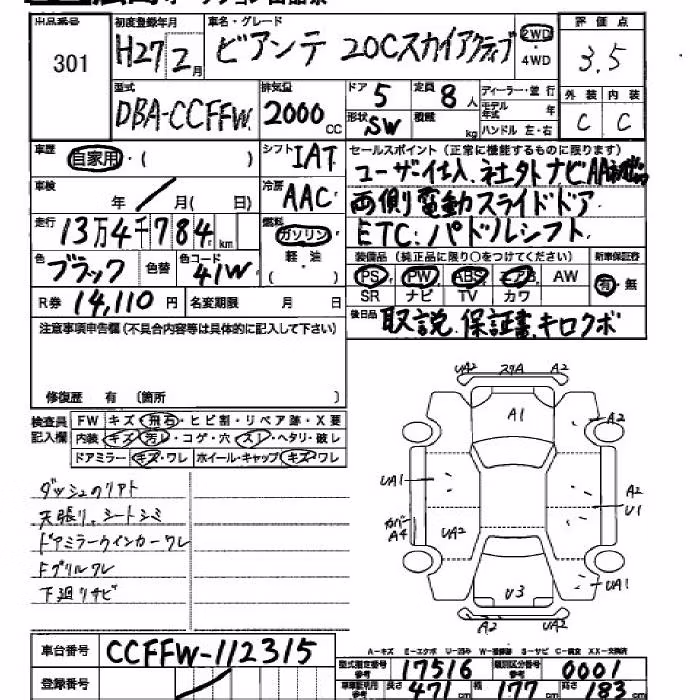 出品番号 初度登録年月 車名・グレード 評価点
301 H27 2月 ビアンテ 20Cスカイアクティブ 2WD・4WD 3.5
型式 排気量 ドア 5 定員 8人 ディーラー・並行 外装 内装
DBA-CCFFW 2000CC 形状 SW 積載 kg モデル年式 年 C C
ハンドル 左・右
車歴 自家用・( ) シフト IAT セールスポイント(正常に機能するものに限ります)
ユーザー仕入. 社外ナビAA
車検 年 月( 日) 冷房 AAC 両側電動スライドドア
走行 13万4千784km 燃料 ガソリン・軽油( ) ETC. パドルシフト
色 ブラック 色替 色コード 41W 装備品(純正品に限り○をつけてください) 新車保証書
PS PW ABS エアB AW 有・無
R券 14,110円 名変期限 月 日 SR ナビ TV カワ
注意事項申告欄(不具合内容等は具体的に記入して下さい) 後日品 取説. 保証書. キロクボ
修復歴 有 〔箇所 〕
検査員記入欄 FW キズ・飛石・ヒビ割・リペア跡・X要
内装 キズ・汚レ・コゲ・穴・スレ・ヘタリ・破レ
ドアミラー キズ・ワレ ホイール・キャップ キズ・ワレ
ダッシュのリアト
天張り. シートシミ
ドアミラーウインカーワレ
Fグリルワレ
下廻リサビ
UA2 A2
A1 A2
UA1 A2 U1
カバー A4 UA2
U3 UA1
A2 UA2
車台番号 CCFFW-112315
A-キズ E-エクボ U-凹み W-補修跡 S-サビ C-腐食 XX-交換済
型式指定番号 17516 類別区分番号 0001
登録番号 車車証明用参考 長さ 471cm 幅 177cm 高さ 183cm